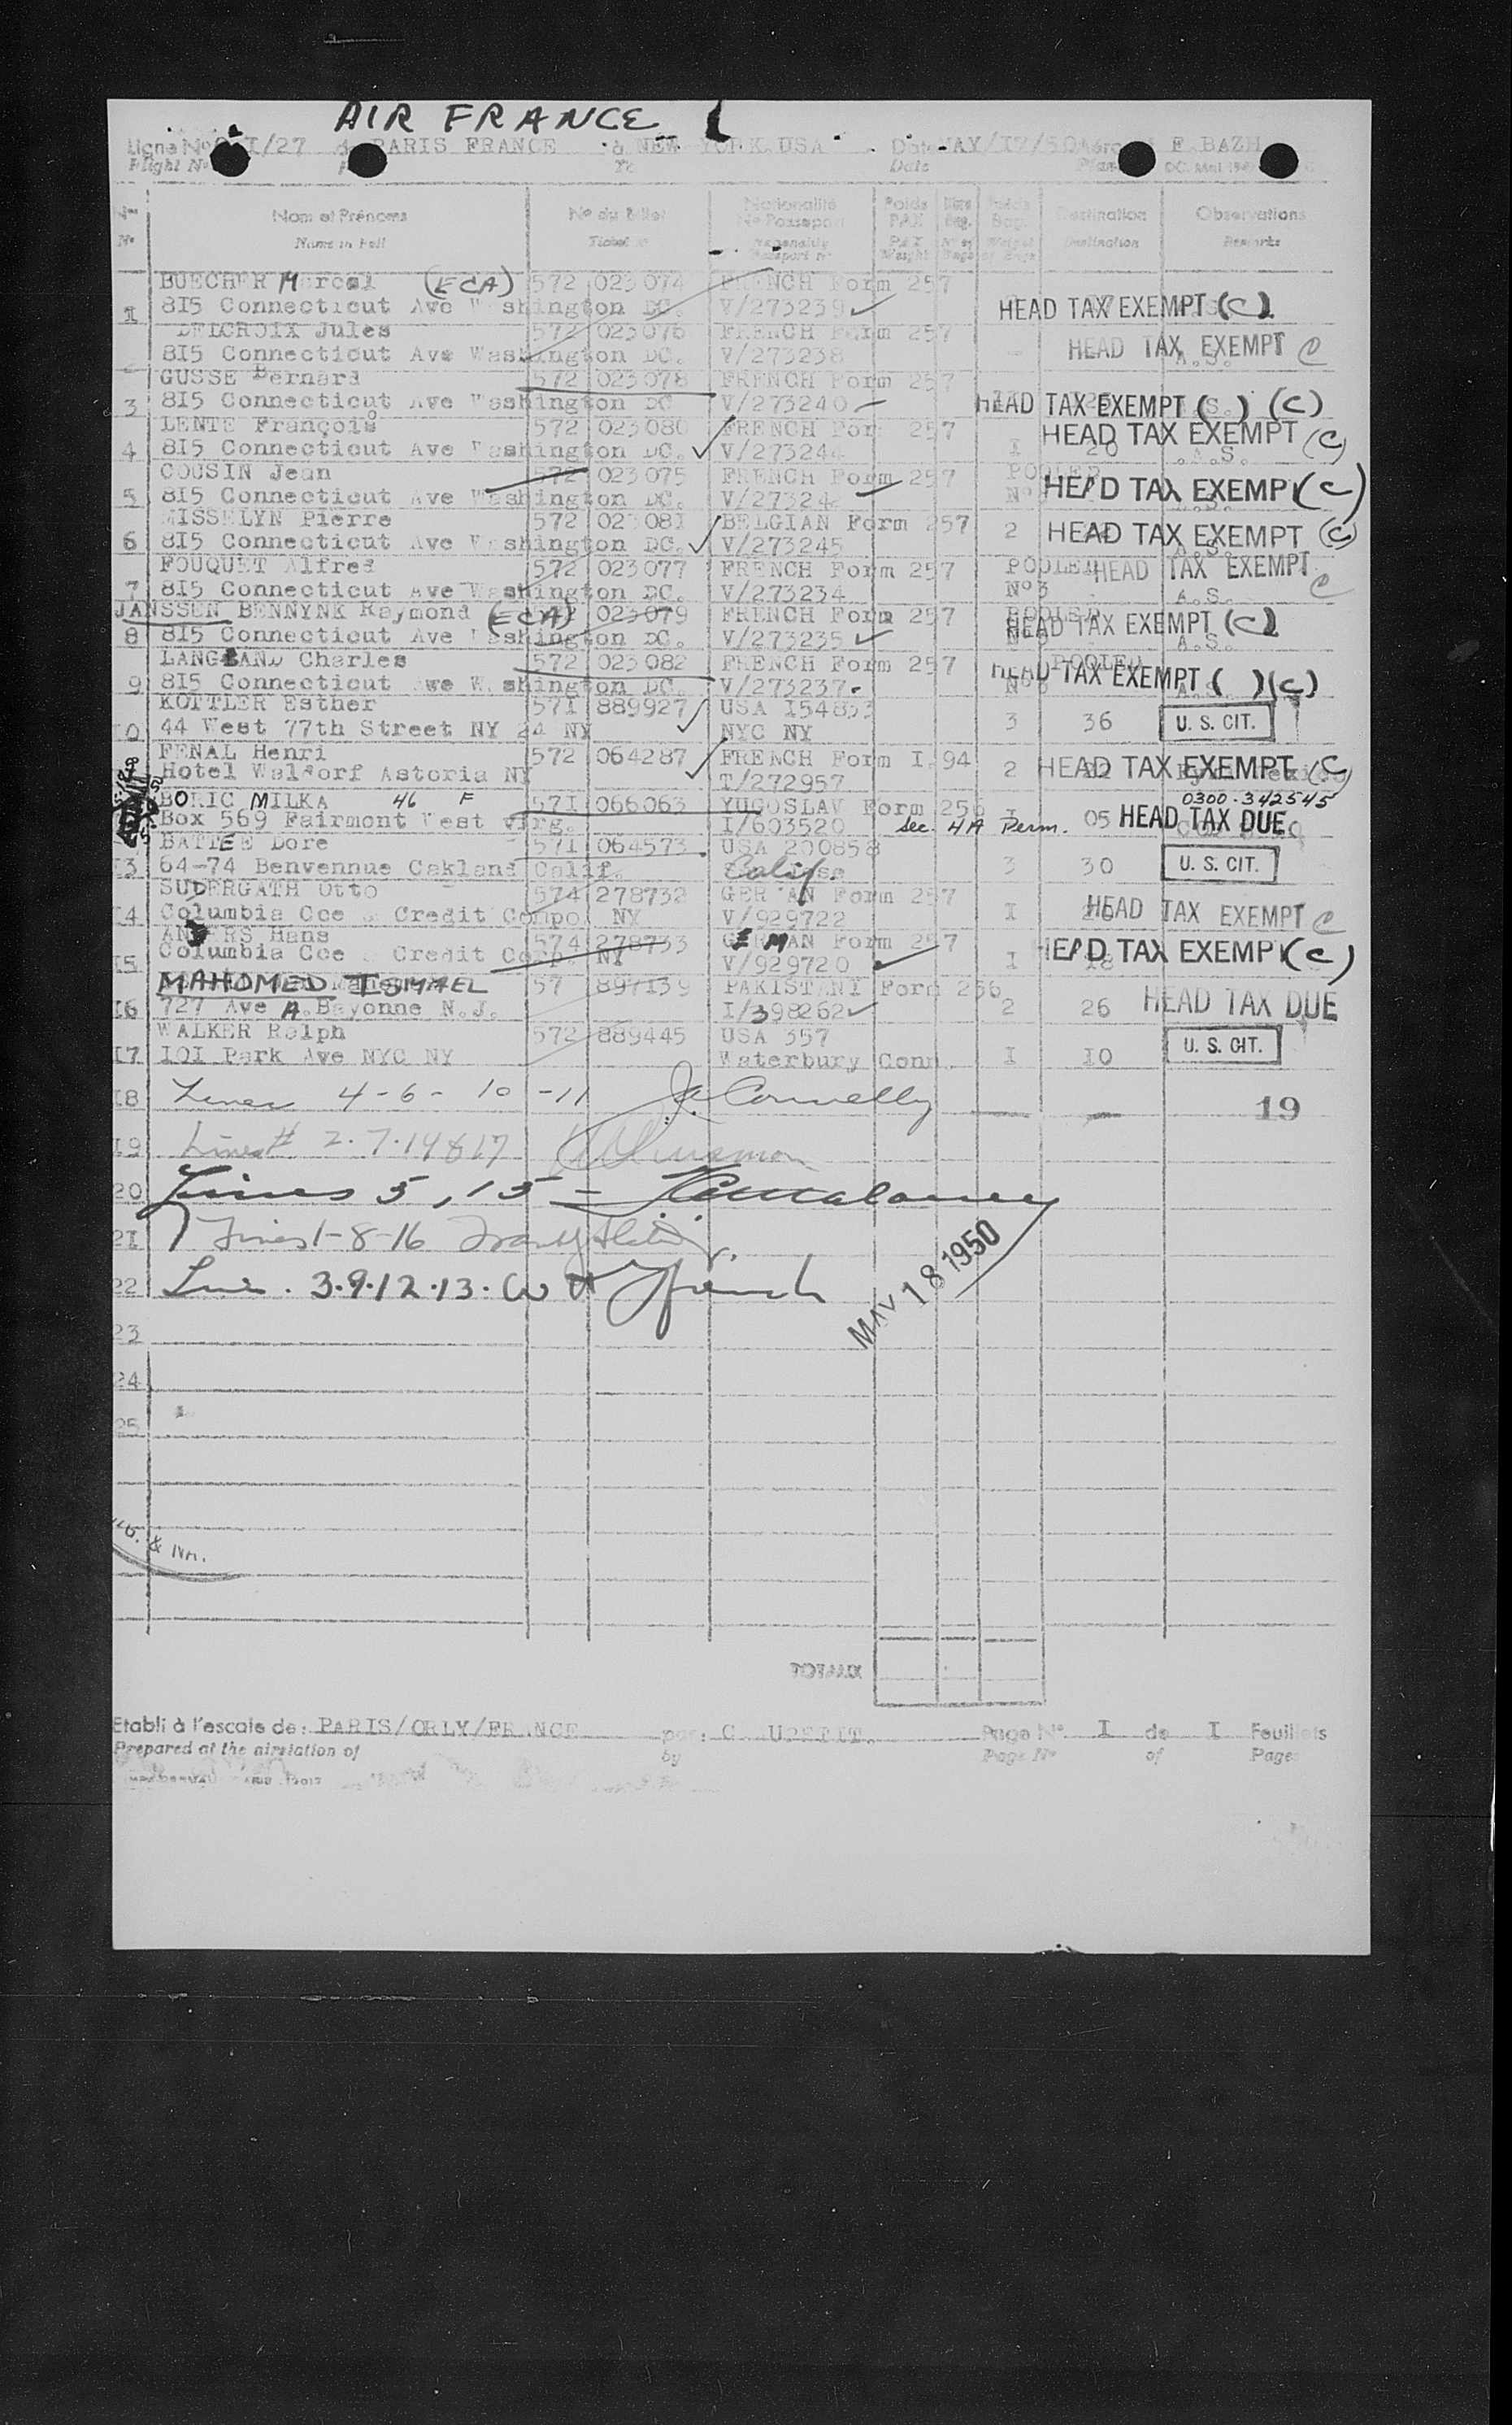 AIR FRANCE
Ligne No I/27 de PARIS FRANCE à NEW YORK USA Date MAY/17/50 F.BAZH
Flight No To Date
No Nom et Prénoms No du Billet Nationalité No Passeport Poids PAX Poids Bag. Destination Observations
No Name in Full Ticket Nationality Passport No PAX Weight No of Bags Weight of Bags Destination Remarks
BUECHER Marcel (ECA) 572 023074 FRENCH Form 257
1 815 Connecticut Ave Washington DC. V/273239 HEAD TAX EXEMPT (C)
DELCROIX Jules 572 023076 FRENCH Form 257
815 Connecticut Ave Washington DC. V/273238 HEAD TAX EXEMPT C A.S.
GUSSE Bernard 572 023078 FRENCH Form 257
3 815 Connecticut Ave Washington DC V/273240 HEAD TAX EXEMPT ( ) (C)
LENTE François 572 023080 FRENCH For 257 HEAD TAX EXEMPT (C)
4 815 Connecticut Ave Washington DC. V/27324 I 20 A.S.
COUSIN Jean 572 023075 FRENCH Form 257 POOLED
5 815 Connecticut Ave Washington DC. V/27324 No HEAD TAX EXEMPT (C)
MISSELYN Pierre 572 023081 BELGIAN Form 257 2 HEAD TAX EXEMPT (C)
6 815 Connecticut Ave Washington DC. V/273245 A.S.
FOUQUET Alfred 572 023077 FRENCH Form 257 POOLED HEAD TAX EXEMPT C
7 815 Connecticut Ave Washington DC. V/273234 No3 A.S.
JANSSEN BENNYNK Raymond (ECA) 023079 FRENCH Form 257 POOLED HEAD TAX EXEMPT (C)
8 815 Connecticut Ave Washington DC. V/273235 A.S.
LANGLAND Charles 572 023082 FRENCH Form 257 POOLED
9 815 Connecticut Ave Washington DC. V/273237 No3 HEAD TAX EXEMPT ( ) (C)
KOTTLER Esther 571 889927 USA 154853
10 44 West 77th Street NY 24 NY NYC NY 3 36 U. S. CIT.
FENAL Henri 572 064287 FRENCH Form I.94
Hotel Waldorf Astoria NY T/272957 2 HEAD TAX EXEMPT (C)
BORIC MILKA 46 F 571 066063 YUGOSLAV Form 256 0300.342545
Box 569 Fairmont West Virg. I/603520 Sec. 4A Perm. 05 HEAD TAX DUE
BATTEE Dore 571 064573 USA 200858
13 64-74 Benvennue Oakland Calif. Calif 3 30 U. S. CIT.
SUDERGATH Otto 574 278732 GERMAN Form 257
14 Columbia Cce & Credit Conpo. NY V/929722 I HEAD TAX EXEMPT C
ANDERS Hans 574 278733 GERMAN Form 257
15 Columbia Cce & Credit Corp. NY V/929720 I 18 HEAD TAX EXEMPT (C)
MAHOMED ISMAEL 57 897139 PAKISTANI Form 256
16 727 Ave A. Bayonne N.J. I/398262 2 26 HEAD TAX DUE
WALKER Ralph 572 889445 USA 357
17 101 Park Ave NYC NY Waterbury Conn. I 10 U. S. CIT.
18 Lines 4-6-10-11 J. Connelly 19
19 Lines# 2.7.14&17
20 Lines 5, 15 -
21 Lines 1-8-16
22 Line. 3.9.12.13.
MAY 18 1950
23
24
25
& NA.
TOTAUX
Etabli à l'escale de: PARIS/ORLY/FRANCE par: C Page No I de I Feuillets
Prepared at the airstation of by Page No of Page